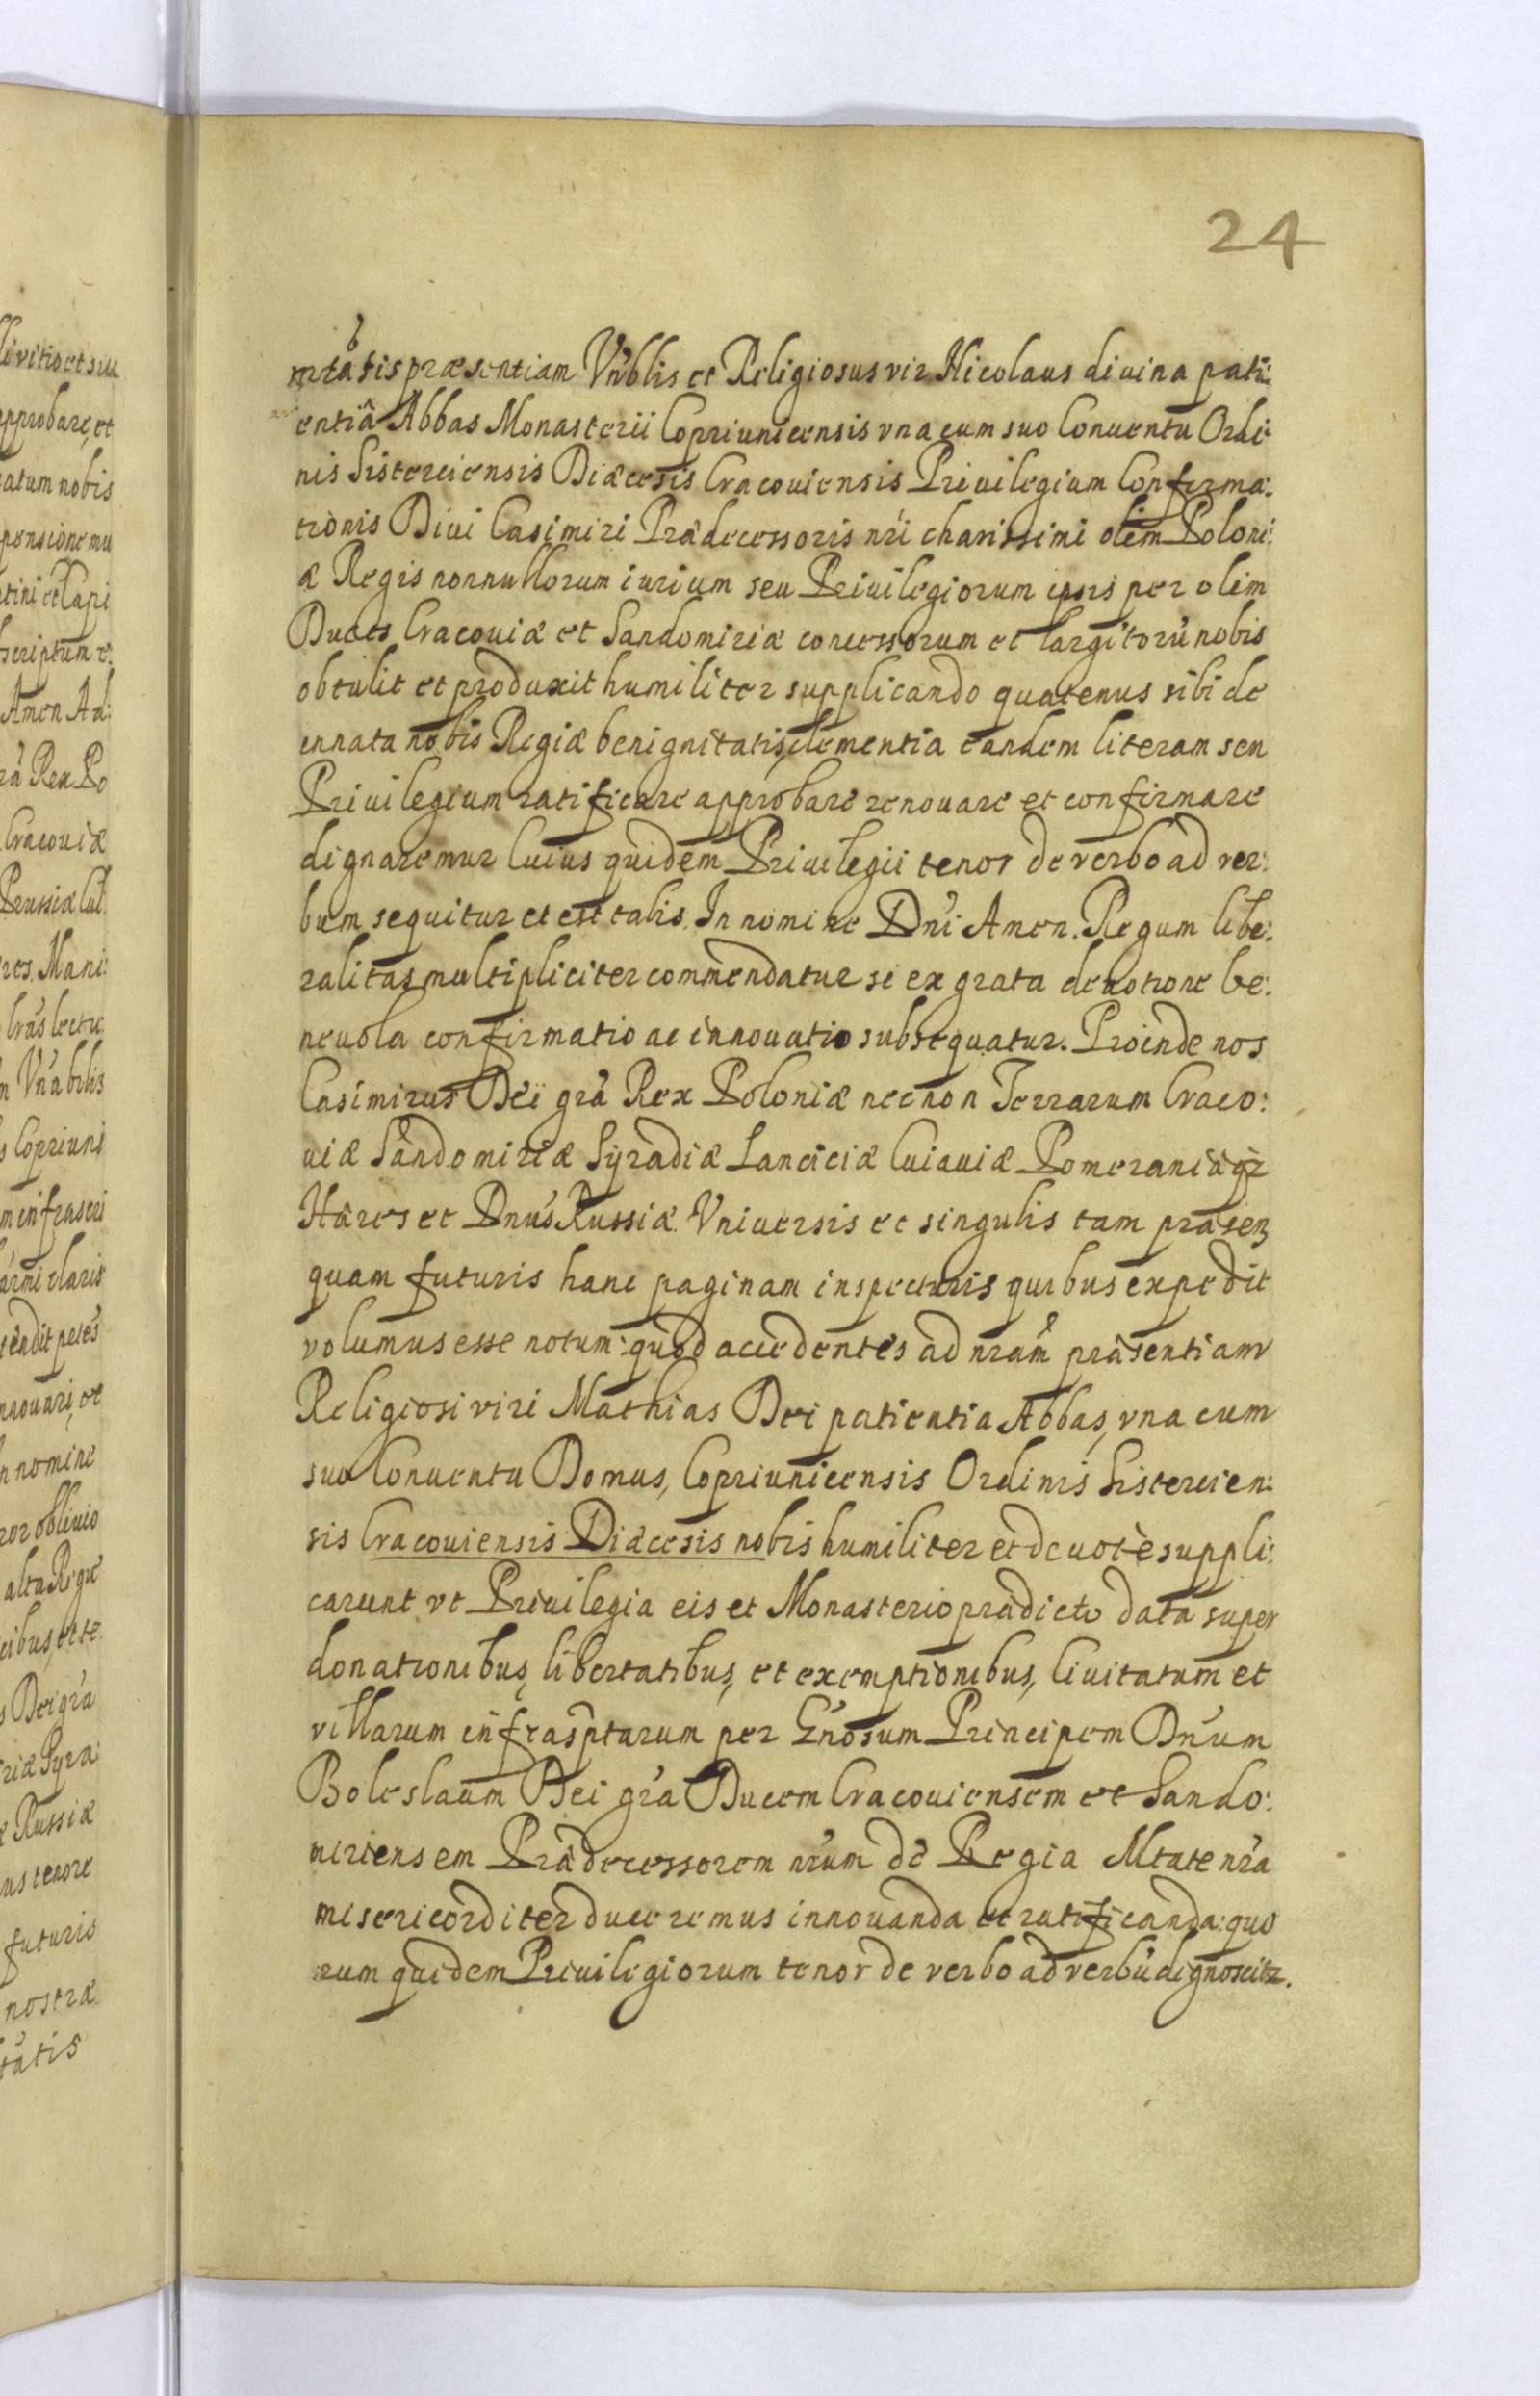 24
mtatis præsentiam Vnblis et Religiosus vir Nicolaus diuina pati:
entiâ Abbas Monasterii Copriunicensis vna cum suo Conuentu Ordi
nis Sisterciensis Diæcesis Cracouiensis Priuilegium Confirma:
tionis Diui Casimiri Prædecessoris nri charissimi olim Poloni:
æ Regis nonnullorum iurium seu Priuilegiorum ipsis per olim
Duces Cracouiæ et Sandomiriæ concessorum et largitorũ nobis
obtulit et produxit humiliter supplicando quatenus sibi de
innata nobis Regiæ benignitatis clementia eandem literam seu
Priuilegium ratificare approbare renouare et confirmare
dignaremur Cuius quidem Priuilegii tenor de verbo ad ver:
bum sequitur et est talis. In nomine Dni Amen. Regum libe:
ralitas multipliciter commendatur si ex grata deuotione be:
neuola confirmatio ac innouatio subsequatur. Proinde nos
Casimirus Dei gra Rex Poloniæ necnon Terrarum Craco:
uiæ Sandomiriæ Syradiæ Lanciciæ Cuiauiæ Pomeraniæ
Hæres et Dnus Russiæ. Vniuersis et singulis tam præsen
quam futuris hanc paginam inspecturis quibus expedit
volumus esse notum: quod accedentes ad nram præsentiam
Religiosi viri Mathias Dei patientia Abbas, vna cum
suo Conuentu Domus, Copriunicensis Ordinis Sistercien:
sis Cracouiensis Diæcesis nobis humiliter et deuotè suppli:
carunt vt Priuilegia eis et Monasterio prædicto data super
donationibus, libertatibus, et exemptionibus, Ciuitatum et
villarum infrasptarum per Gnosum Principem Dnum
Boleslaum Dei gra Ducem Cracouiensem et Sando:
miriensem Prædecessorem nrum de Regia Mtate nra
misericorditer duceremus innouanda et ratificanda: quo
rum quidem Priuilegiorum tenor de verbo ad verbũ dignoscitr.